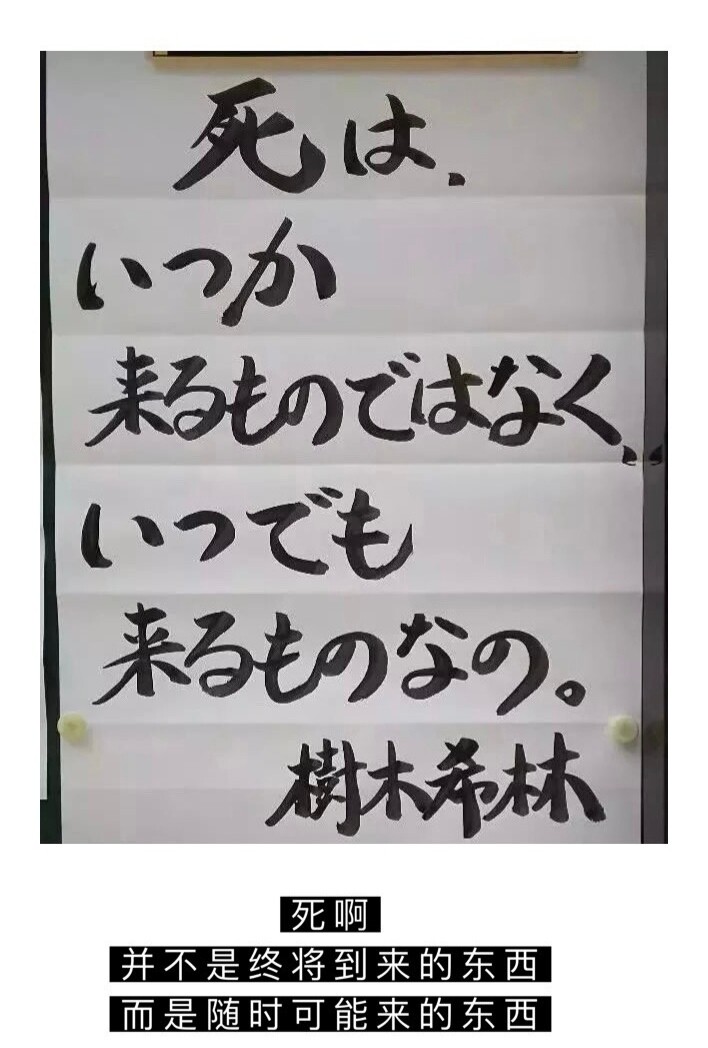 死は、
いつか
来るものではなく、
いつでも
来るものなの。
樹木希林
死啊
并不是终将到来的东西
而是随时可能来的东西